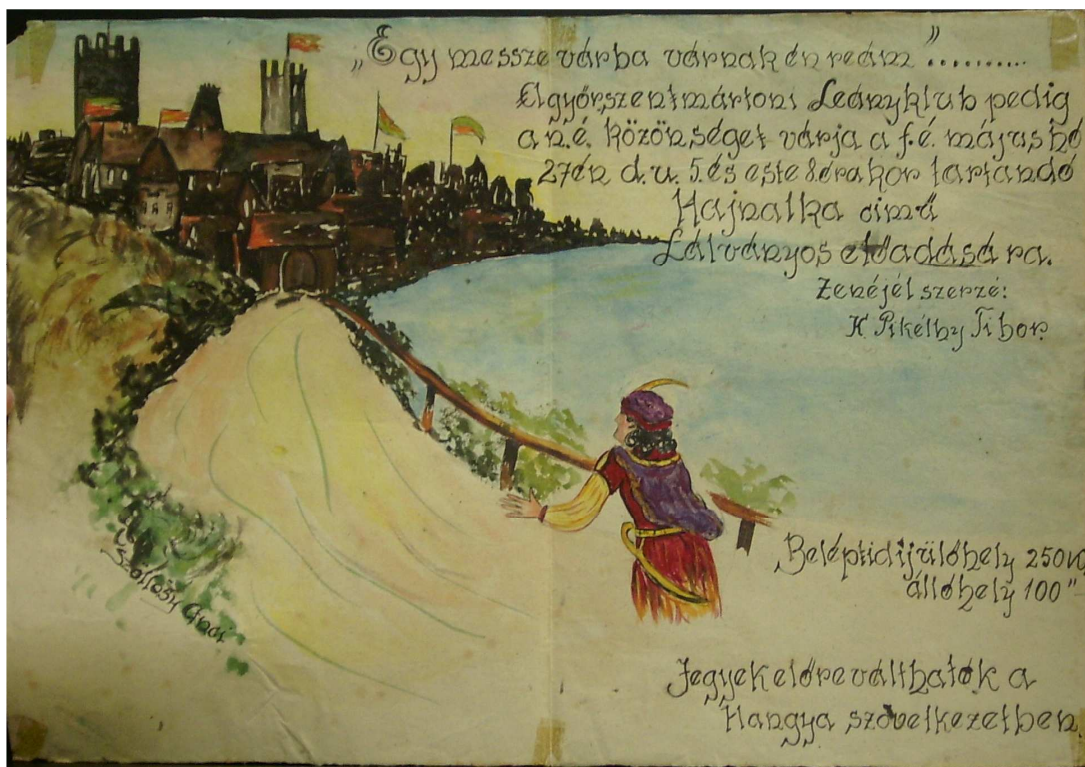 „Egy messze várba várnak én reám”..........
A győrszentmártoni Leányklub pedig
a n.é. közönséget várja a f.é. május hó
27én d.u. 5. és este 8. órakor tartandó
Hajnalka cimű
Látványos előadására.
Zenéjét szerzé:
K Pikéthy Tibor.
Beléptidíj ülőhely 250
állóhely 100 "
Jegyek előre válthatók a
Hangya szövetkezetben.
Szőllősy